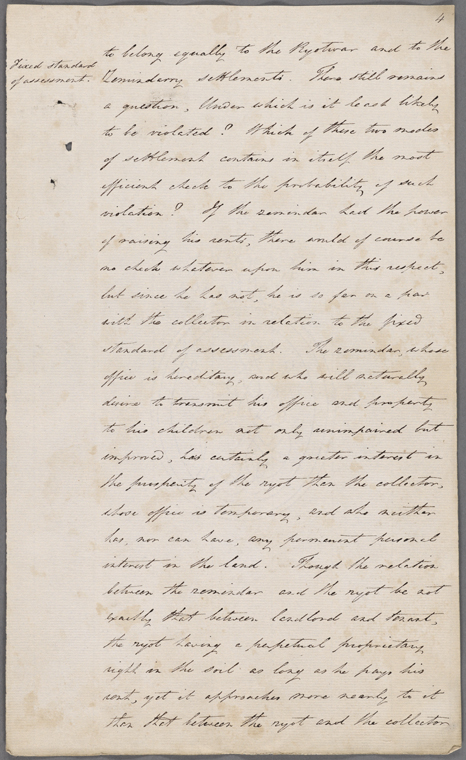 4
Fixed standard
of assessment.
to belong equally to the Ryotwar and to the
Zemindarry settlements. There still remains
a question, Under which is it least likely
to be violated? Which of these two modes
of settlement contains in itself the most
efficient check to the probability of such
violation? If the zemindar had the power
of raising his rents, there could of course be
no check whatever upon him in this respect,
but since he has not, he is so far on a par
with the collector in relation to the fixed
standard of assessment. The zemindar, whose
office is hereditary, and who will naturally
desire to transmit his office and property
to his children not only unimpaired but
improved, has certainly a greater interest in
the prosperity of the ryot than the collector,
whose office is temporary, and who neither
has, nor can have, any permanent personal
interest in the land. Though the relation
between the zemindar and the ryot be not
exactly that between landlord and tenant,
the ryot having a perpetual proprietary
right in the soil as long as he pays his
rent, yet it approaches more nearly to it
than that between the ryot and the collector